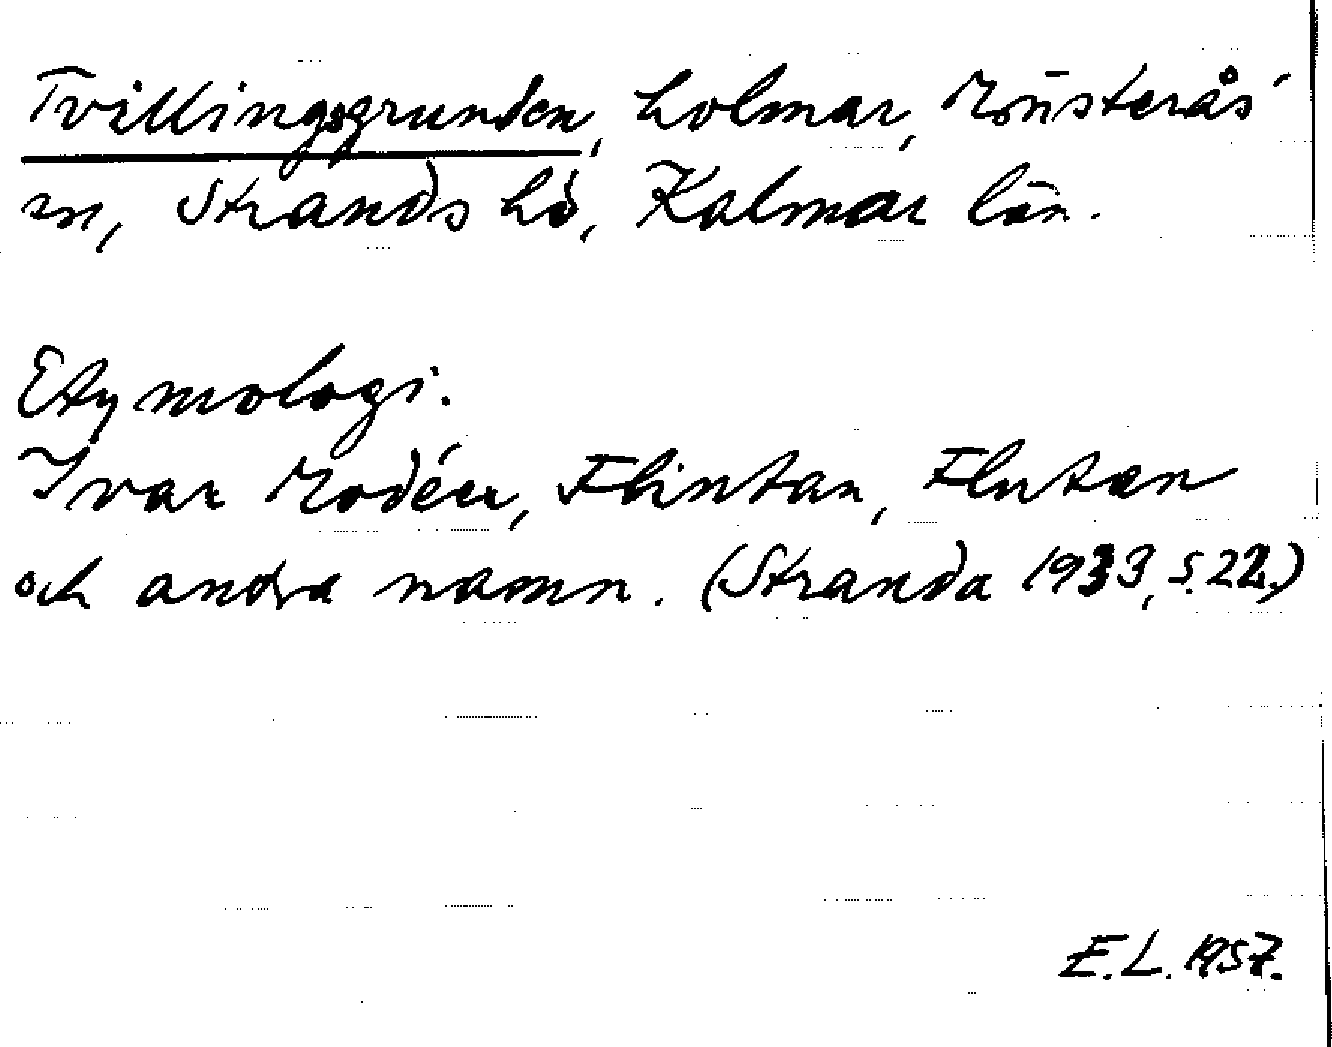 Tvillingsgrunden, holmar, Mönsterås
sn, Strands hd, Kalmar län.
Etymologi.
Ivar Modéer, Flintan, Flutan
och andra namn. (Stranda 1933, s. 22.)
E.L. 1957.